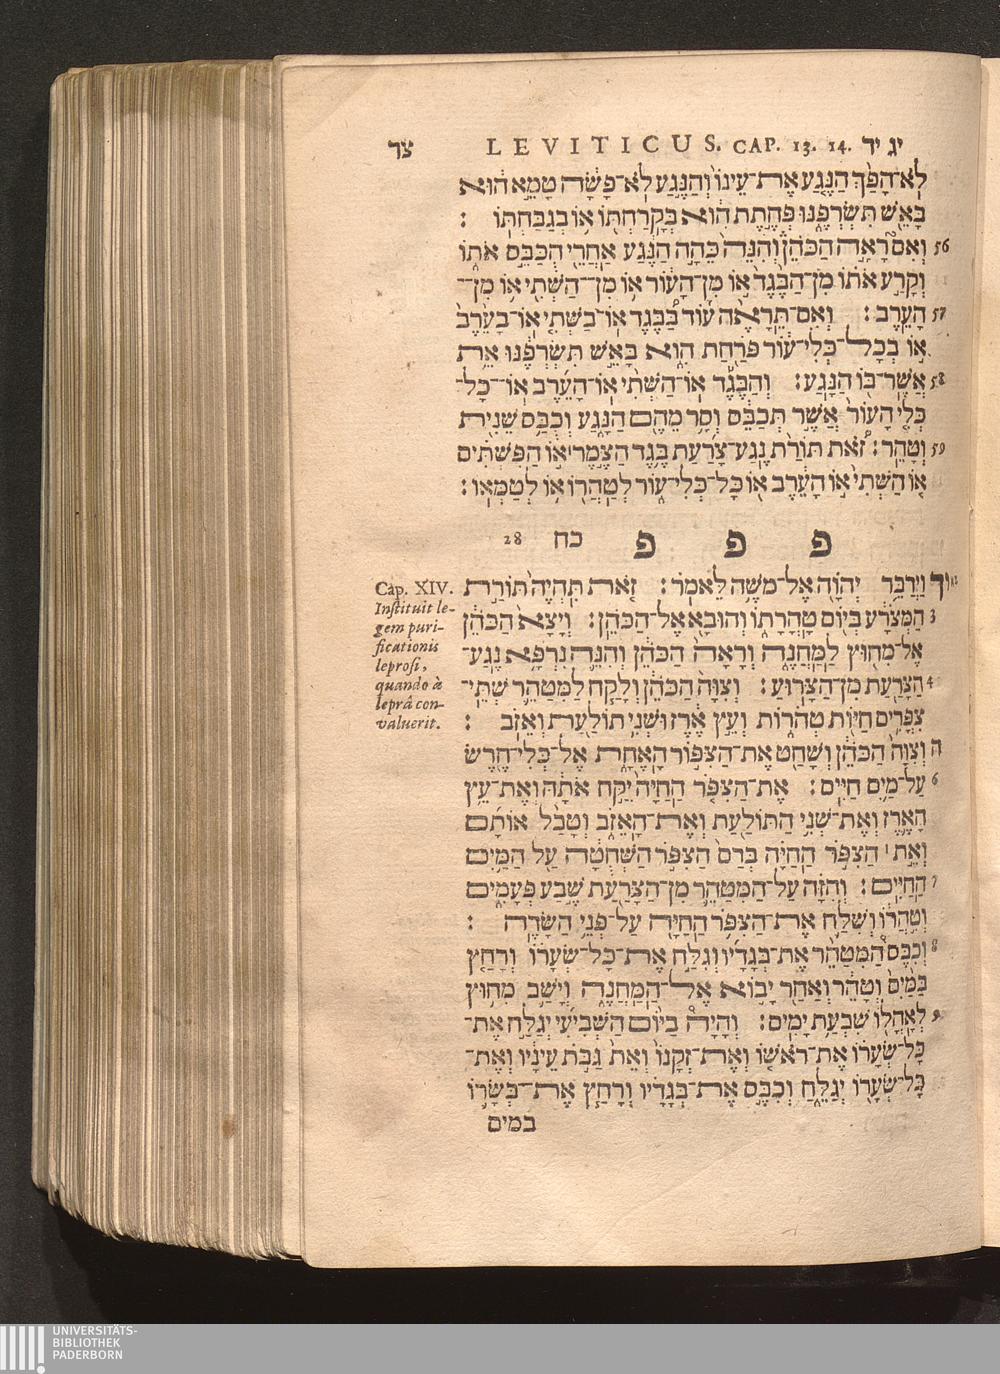 צד LEVITICUS. CAP. 13. 14. יג יד
לֹא־הָפַךְ הַנֶּגַע אֶת־עֵינוֹ וְהַנֶּגַע לֹא־פָשָׂה טָמֵא הוּא
בָּאֵשׁ תִּשְׂרְפֶנּוּ פְּחֶתֶת הִוא בְּקָרַחְתּוֹ אוֹ בְגַבַּחְתּוֹ :
56 וְאִם רָאָה הַכֹּהֵן וְהִנֵּה כֵּהָה הַנֶּגַע אַחֲרֵי הֻכַּבֵּס אֹתוֹ
וְקָרַע אֹתוֹ מִן־הַבֶּגֶד אוֹ מִן־הָעוֹר אוֹ מִן־הַשְּׁתִי אוֹ מִן־
57 הָעֵרֶב : וְאִם־תֵּרָאֶה עוֹד בַּבֶּגֶד אוֹ־בַשְּׁתִי אוֹ־בָעֵרֶב
אוֹ בְכָל־כְּלִי־עוֹר פֹּרַחַת הִוא בָּאֵשׁ תִּשְׂרְפֶנּוּ אֵת
58 אֲשֶׁר־בּוֹ הַנָּגַע : וְהַבֶּגֶד אוֹ־הַשְּׁתִי אוֹ־הָעֵרֶב אוֹ־כָל־
כְּלִי הָעוֹר אֲשֶׁר תְּכַבֵּס וְסָר מֵהֶם הַנָּגַע וְכֻבַּס שֵׁנִית
59 וְטָהֵר : זֹאת תּוֹרַת נֶגַע־צָרַעַת בֶּגֶד הַצֶּמֶר אוֹ הַפִּשְׁתִּים
אוֹ הַשְּׁתִי אוֹ הָעֵרֶב אוֹ כָּל־כְּלִי־עוֹר לְטַהֲרוֹ אוֹ לְטַמְּאוֹ :
פ פ פ כח 28
וַיְדַבֵּר יְהוָֹה אֶל־מֹשֶׁה לֵּאמֹר : זֹאת תִּהְיֶה תּוֹרַת
3 הַמְּצֹרָע בְּיוֹם טָהֳרָתוֹ וְהוּבָא אֶל־הַכֹּהֵן : וְיָצָא הַכֹּהֵן
אֶל־מִחוּץ לַמַּחֲנֶה וְרָאָה הַכֹּהֵן וְהִנֵּה נִרְפָּא נֶגַע־
4 הַצָּרַעַת מִן־הַצָּרוּעַ : וְצִוָּה הַכֹּהֵן וְלָקַח לַמִּטַּהֵר שְׁתֵּי־
צִפֳּרִים חַיּוֹת טְהֹרוֹת וְעֵץ אֶרֶז וּשְׁנִי תוֹלַעַת וְאֵזֹב :
ה וְצִוָּה הַכֹּהֵן וְשָׁחַט אֶת־הַצִּפּוֹר הָאֶחָת אֶל־כְּלִי־חֶרֶשׂ
6 עַל־מַיִם חַיִּים : אֶת־הַצִּפֹּר הַחַיָּה יִקַּח אֹתָהּ וְאֶת־עֵץ
הָאֶרֶז וְאֶת־שְׁנִי הַתּוֹלַעַת וְאֶת־הָאֵזֹב וְטָבַל אוֹתָם
וְאֵת ׀ הַצִּפֹּר הַחַיָּה בְּדַם הַצִּפֹּר הַשְּׁחֻטָה עַל הַמַּיִם
7 הַחַיִּים : וְהִזָּה עַל־הַמִּטַּהֵר מִן־הַצָּרַעַת שֶׁבַע פְּעָמִים
וְטִהֲרוֹ וְשִׁלַּח אֶת־הַצִּפֹּר הַחַיָּה עַל־פְּנֵי הַשָּׂדֶה :
8 וְכִבֶּס הַמִּטַּהֵר אֶת־בְּגָדָיו וְגִלַּח אֶת־כָּל־שְׂעָרוֹ וְרָחַץ
בַּמַּיִם וְטָהֵר וְאַחַר יָבוֹא אֶל־הַמַּחֲנֶה וְיָשַׁב מִחוּץ
9 לְאָהֳלוֹ שִׁבְעַת יָמִים : וְהָיָה בַיּוֹם הַשְּׁבִיעִי יְגַלַּח אֶת־
כָּל־שְׂעָרוֹ אֶת־רֹאשׁוֹ וְאֶת־זְקָנוֹ וְאֵת גַּבֹּת עֵינָיו וְאֶת־
כָּל־שְׂעָרוֹ יְגַלֵּחַ וְכִבֶּס אֶת־בְּגָדָיו וְרָחַץ אֶת־בְּשָׂרוֹ
במים
Cap. XIV.
Instituit le-
gem puri-
ficationis
leprosi,
quando à
leprâ con-
valuerit.
UNIVERSITÄTS-
BIBLIOTHEK
PADERBORN